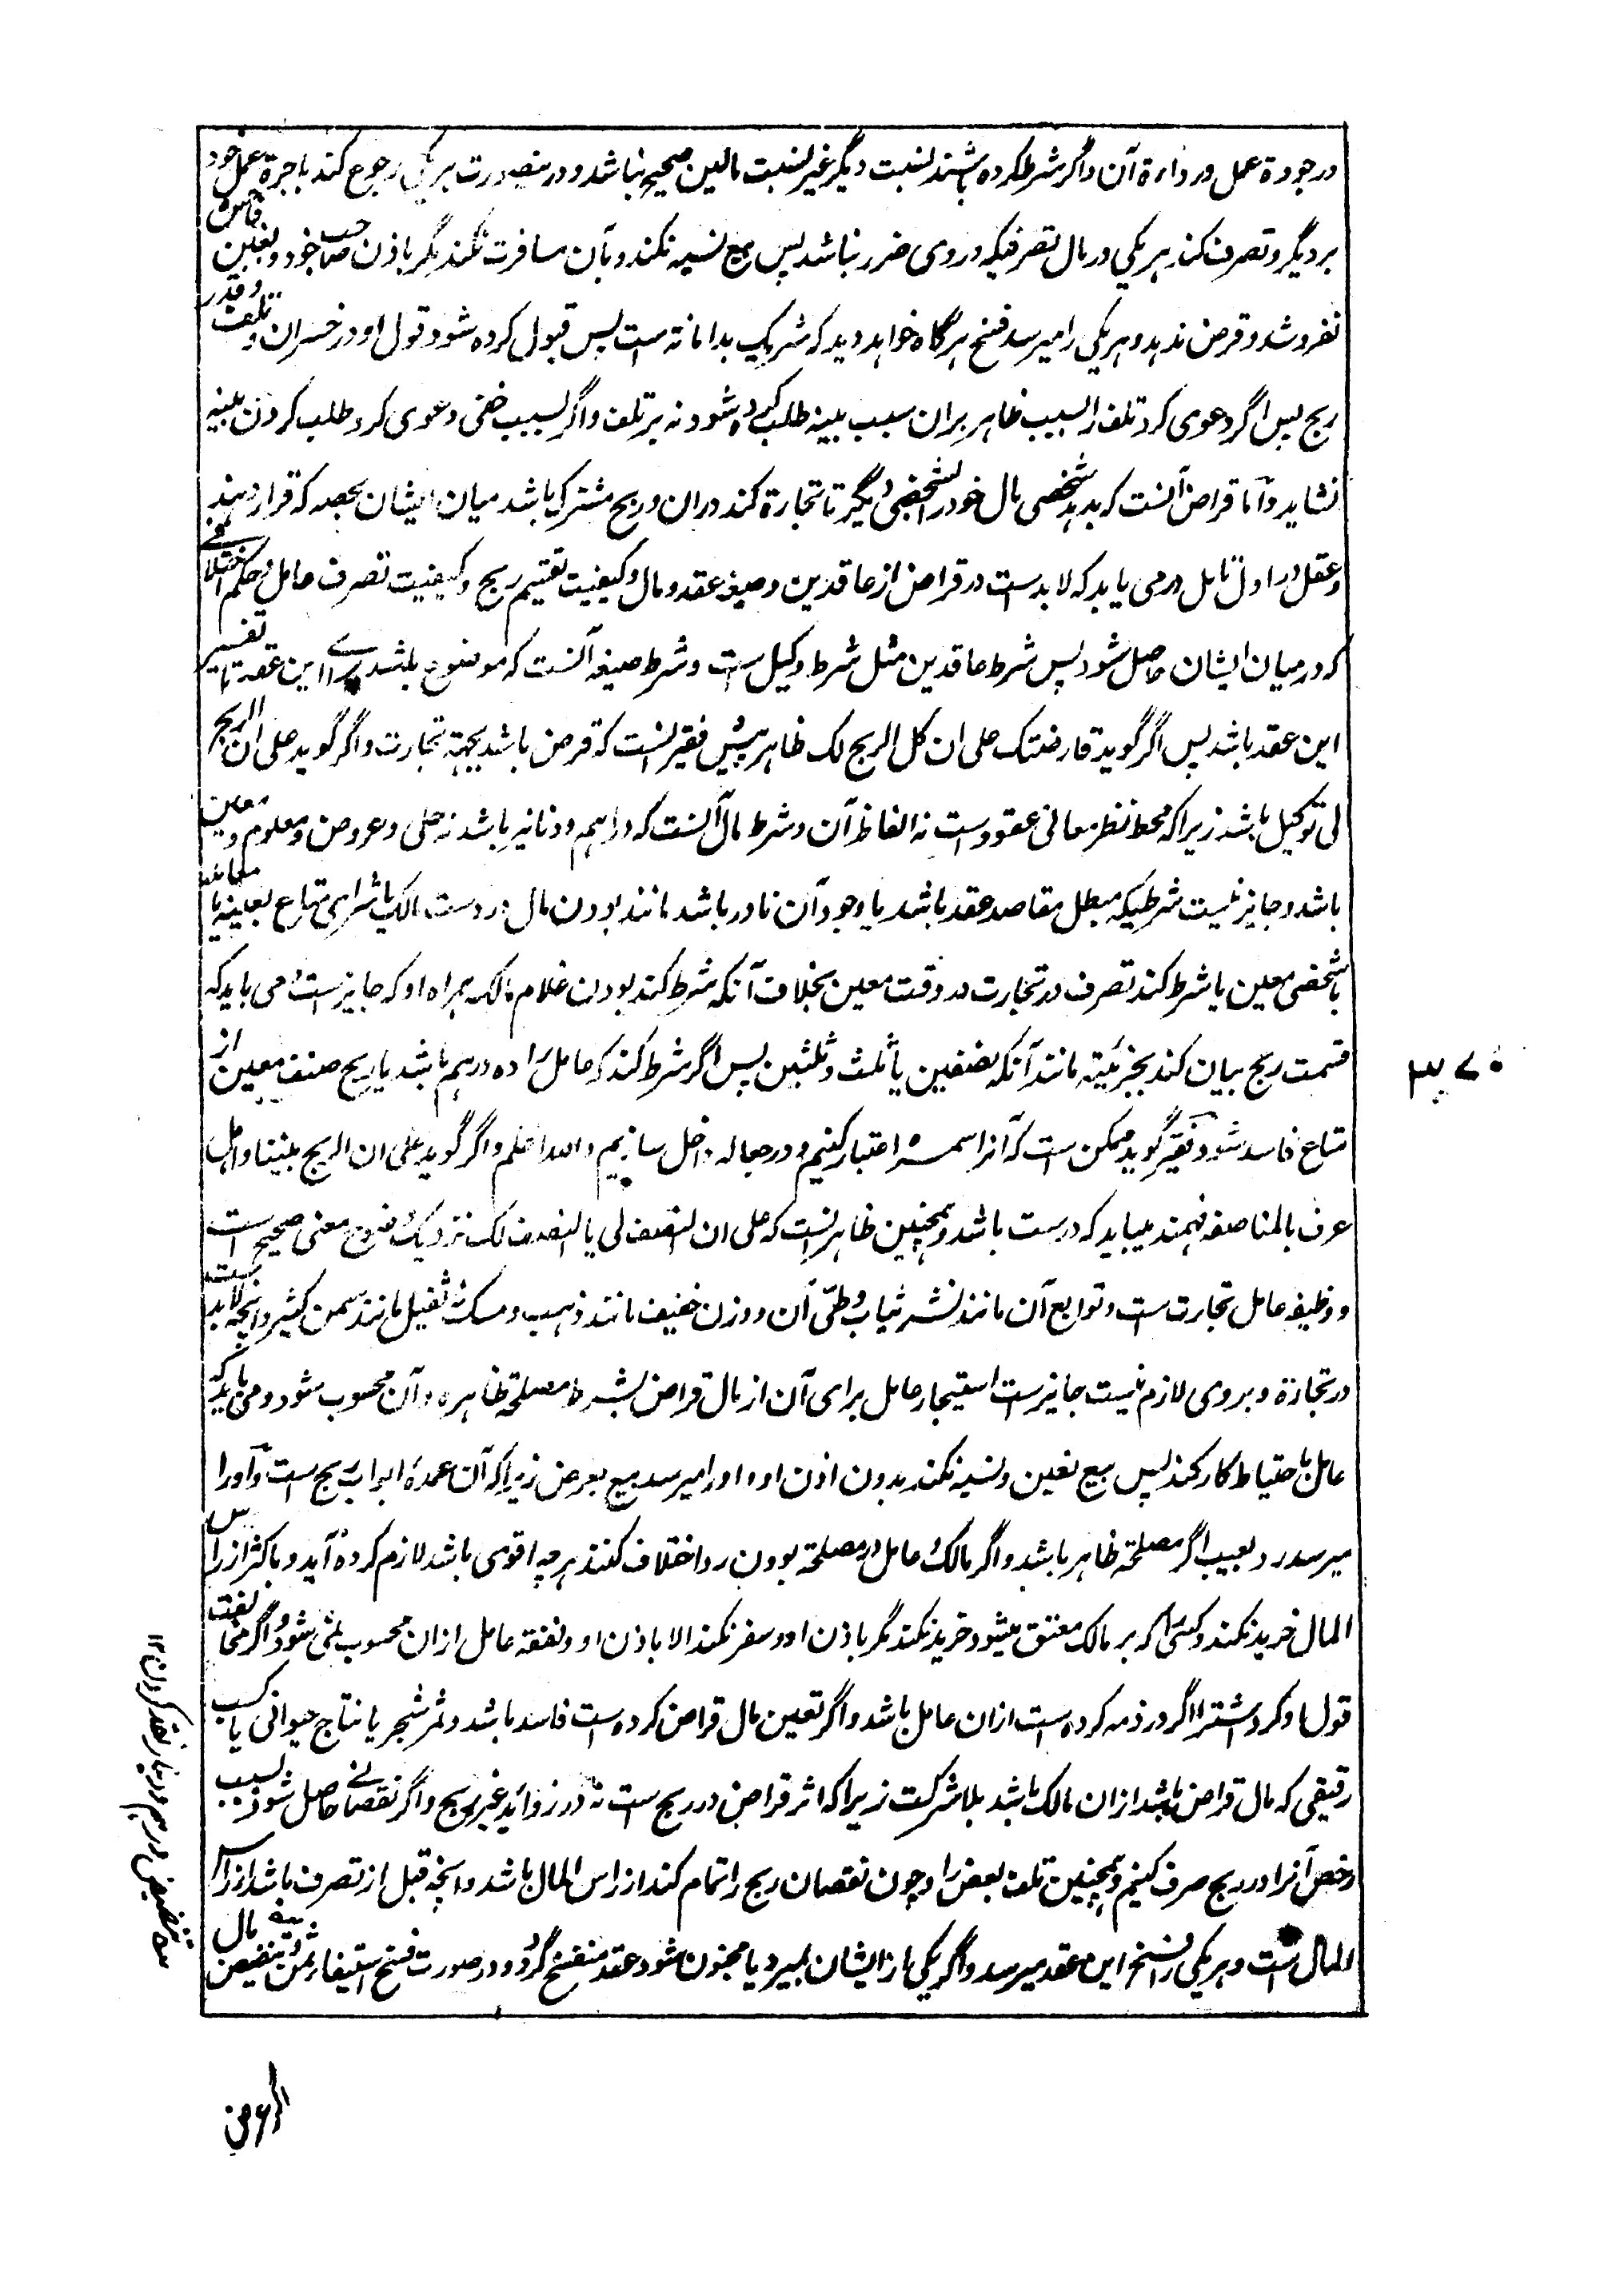 در جودة عمل و رداءة آن و اگر شرط کرده باشند نسبت دیگر غیر نسبت مالین صحیح نباشد و درینصورت هر یکی رجوع کند باجرة عمل خود
بر دیگر و تصرف کند هر یکی در مال تصرفیکه در وی ضرر نباشد پس بیع نسیه نکند و بآن مسافرت نکند مگر باذن صاحب خود و بغبن فاحش
نفروشد و قرض ندهد و هر یکی را میرسد فسخ هرگاه خواهد و ید کہ شریک ید امانة است پس قبول کرده شود قول او در خسران و تلف و قدر
ربح پس اگر دعوی کرد تلف را بسبب ظاهر بران سبب بینه طلب کرده شود نه بر تلف و اگر بسبب خفی دعوی کرد طلب کردن بینه
نشاید و اما قراض آنست که بدهد شخصی مال خود را بشخصی دیگر تا تجارة کند دران و ربح مشترک باشد میان ایشان بحصه که قرار دهند
و عقل در اول تامل در می یابد که لابدست در قراض از عاقدین و صیغه عقد و مال و کیفیت تقسیم ربح و کیفیت تصرف عامل و حکم اختلافی
که در میان ایشان حاصل شود پس شرط عاقدین مثل شرط وکیل ست و شرط صیغه آنست که موضوع باشد برای این عقد یا تفسیر
این عقد باشد پس اگر گوید قارضتک علی ان کل الربح لک ظاهر پیش فقیر آنست که قرض باشد بجهة تجارت و اگر گوید علی ان الربح
لی توکیل باشد زیرا که محط نظر معانی عقودست نه الفاظ آن و شرط مال آنست که دراهم و دنانیر باشد نه حلی و عروض و معلوم و معین
باشد و جایز نیست شرطیکه مبطل مقاصد عقد باشد یا وجود آن نادر باشد مانند بودن مال در دست مالک یا شرای متاع بعینه یا معامله
با شخصی معین یا شرط کند تصرف در تجارت در وقت معین بخلاف آنکه شرط کند بودن غلام مالک همراه او که جایزست و می باید که
قسمت ربح بیان کند بجزئیة مانند آنکه نصفین یا ثلث و ثلثین پس اگر شرط کند که عامل را ده درهم باشد یا ربح صنف معین از
متاع فاسد شود فقیر گوید ممکن ست که آنرا سمسره اعتبار کنیم و در جعاله داخل سازیم والله اعلم و اگر گوید علی ان الربح بیننا و اهل
عرف بالمناصفه فهمند میباید که درست باشد و همچنین ظاهر آنست که علی ان النصف لی یا النصف لک نزدیک وضوح معنی صحیح است
و وظیفه عامل تجارت ست و توابع آن مانند نشر ثیاب و طیّ آن و وزن خفیف مانند ذهب و مسک نه ثقیل مانند سمن کثیر و آنچه لابد ست
در تجارة و بر وی لازم نیست جایزست استیجار عامل برای آن از مال قراض بشرط مصلحة ظاهره و آن محسوب شود و می باید که
عامل باحتیاط کار کند پس بیع بغبن و نسیه نکند بدون اذن او و او را میرسد بیع بعرض زیرا که آن عمدهٔ ابواب ربح ست و او را
میرسد رد بعیب اگر مصلحة ظاهر باشد و اگر مالک و عامل در مصلحة بودن رد اختلاف کنند هر چه اقوی باشد لازم کرده آید و باکثر از راس
المال خرید نکند و کسی را که بر مالک معتق میشود خرید نکند مگر باذن او و سفر نکند الا باذن او و نفقه عامل ازان محسوب نمی شود و اگر مخالفت
قول او کرد شتراء اگر در ذمه کرده ست ازان عامل باشد و اگر تعین مال قراض کرده ست فاسد باشد و ثمر شجر یا نتاج حیوانی یا کسب
رقیقی که مال قراض باشد ازان مالک باشد بلا شرکت زیرا که اثر قراض در ربح ست نه در زواید غیر ربح و اگر نقصانے حاصل شود بسبب
رخص آنرا در ربح صرف کنیم و همچنین تلف بعض را و چون نقصان ربح را تمام کند از راس المال باشد و آنچه قبل از تصرف باشد از راس
المال ست و هر یکی را فسخ این عقد میرسد و اگر یکی از ایشان بمیرد یا مجنون شود عقد منفسخ گردد و در صورت فسخ استیفاء ثمن و تنضیض بقیه مال
۳۷۰
تنضیض درهم و دینار نقد کردن ۱۲